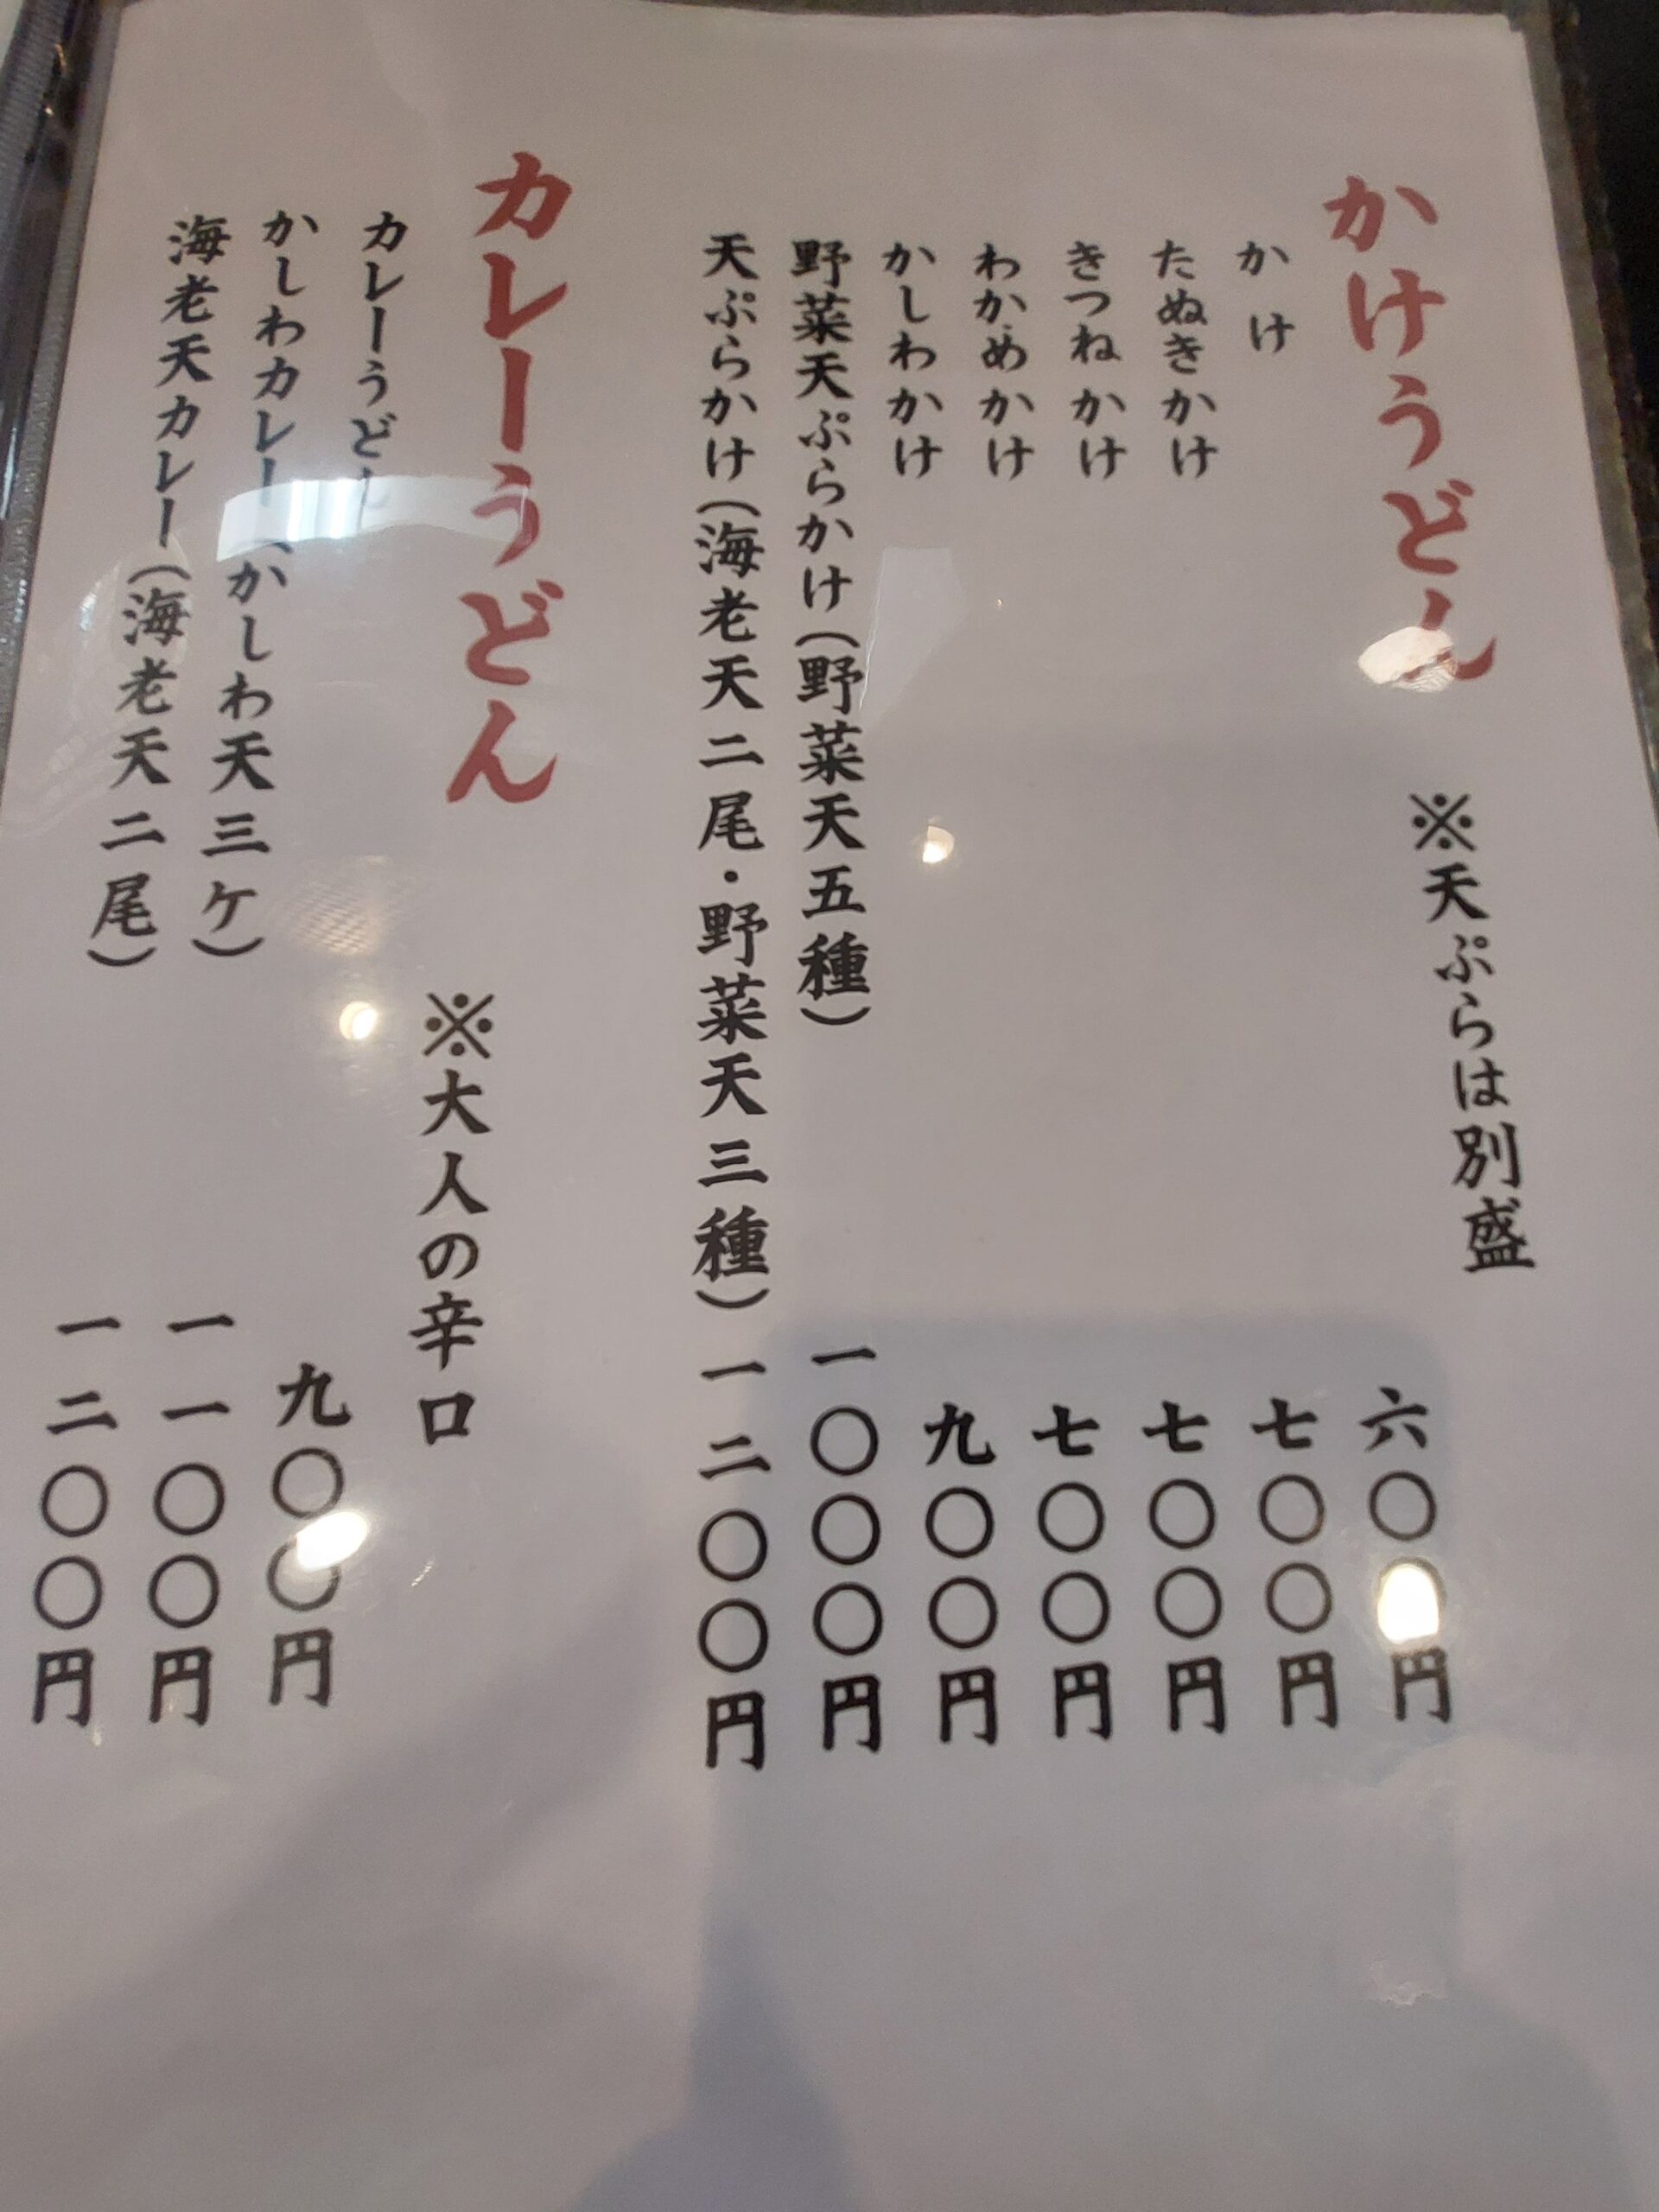 かけうどん ※天ぷらは別盛
かけ 六〇〇円
たぬきかけ 七〇〇円
きつねかけ 七〇〇円
わかめかけ 七〇〇円
かしわかけ 九〇〇円
野菜天ぷらかけ(野菜天五種) 一〇〇〇円
天ぷらかけ(海老天二尾・野菜天三種) 一二〇〇円
カレーうどん ※大人の辛口
カレーうどん 九〇〇円
かしわカレー(かしわ天三ケ) 一一〇〇円
海老天カレー(海老天二尾) 一二〇〇円